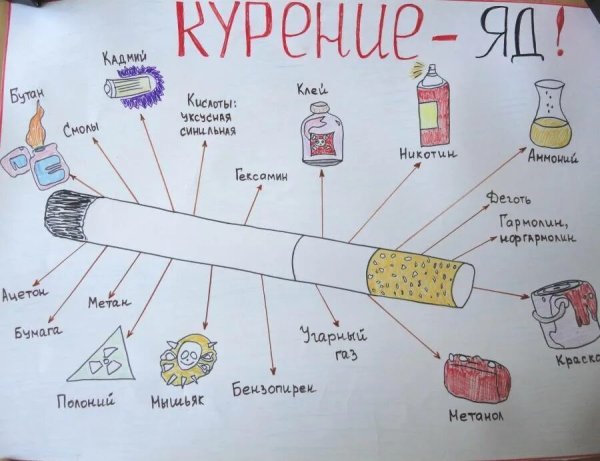 КУРЕНИЕ - ЯД!
Бутан
Кадмий
Смолы
Кислоты:
уксусная
синильная
Гексамин
Клей
Никотин
Аммоний
Деготь
Гармолин,
норгармолин
Ацетон
Бумага
Метан
Полоний
Мышьяк
Бензопирен
Угарный
газ
Метанол
Краска